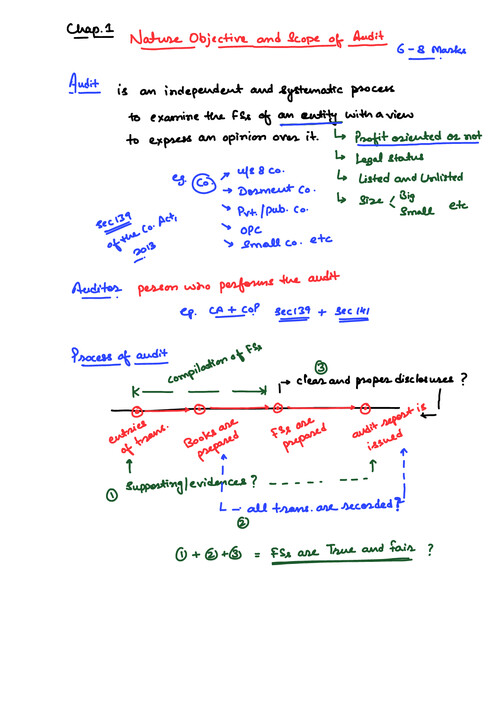 Chap.1
Nature Objective and Scope of Audit
6-8 Marks
Audit is an independent and systematic process
to examine the FSs of an entity with a view
to express an opinion over it.
↳ Profit oriented or not
↳ Legal status
↳ Listed and Unlisted
↳ Size < Big
Small etc
eg. Co. → u/s 8 Co.
→ Dormant Co.
→ Pvt./Pub. Co.
→ OPC
→ Small co. etc
Sec 139
of the Co. Act,
2013
Auditor person who performs the audit
eg. CA + COP Sec 139 + Sec 141
Process of audit
compilation of FSs
③
↱ clear and proper disclosures ?
entries
of trans.
Books are
prepared
FSs are
prepared
audit report is
issued
① Supporting/evidences ?
↳ all trans. are recorded?
②
① + ② + ③ = FSs are True and fair ?